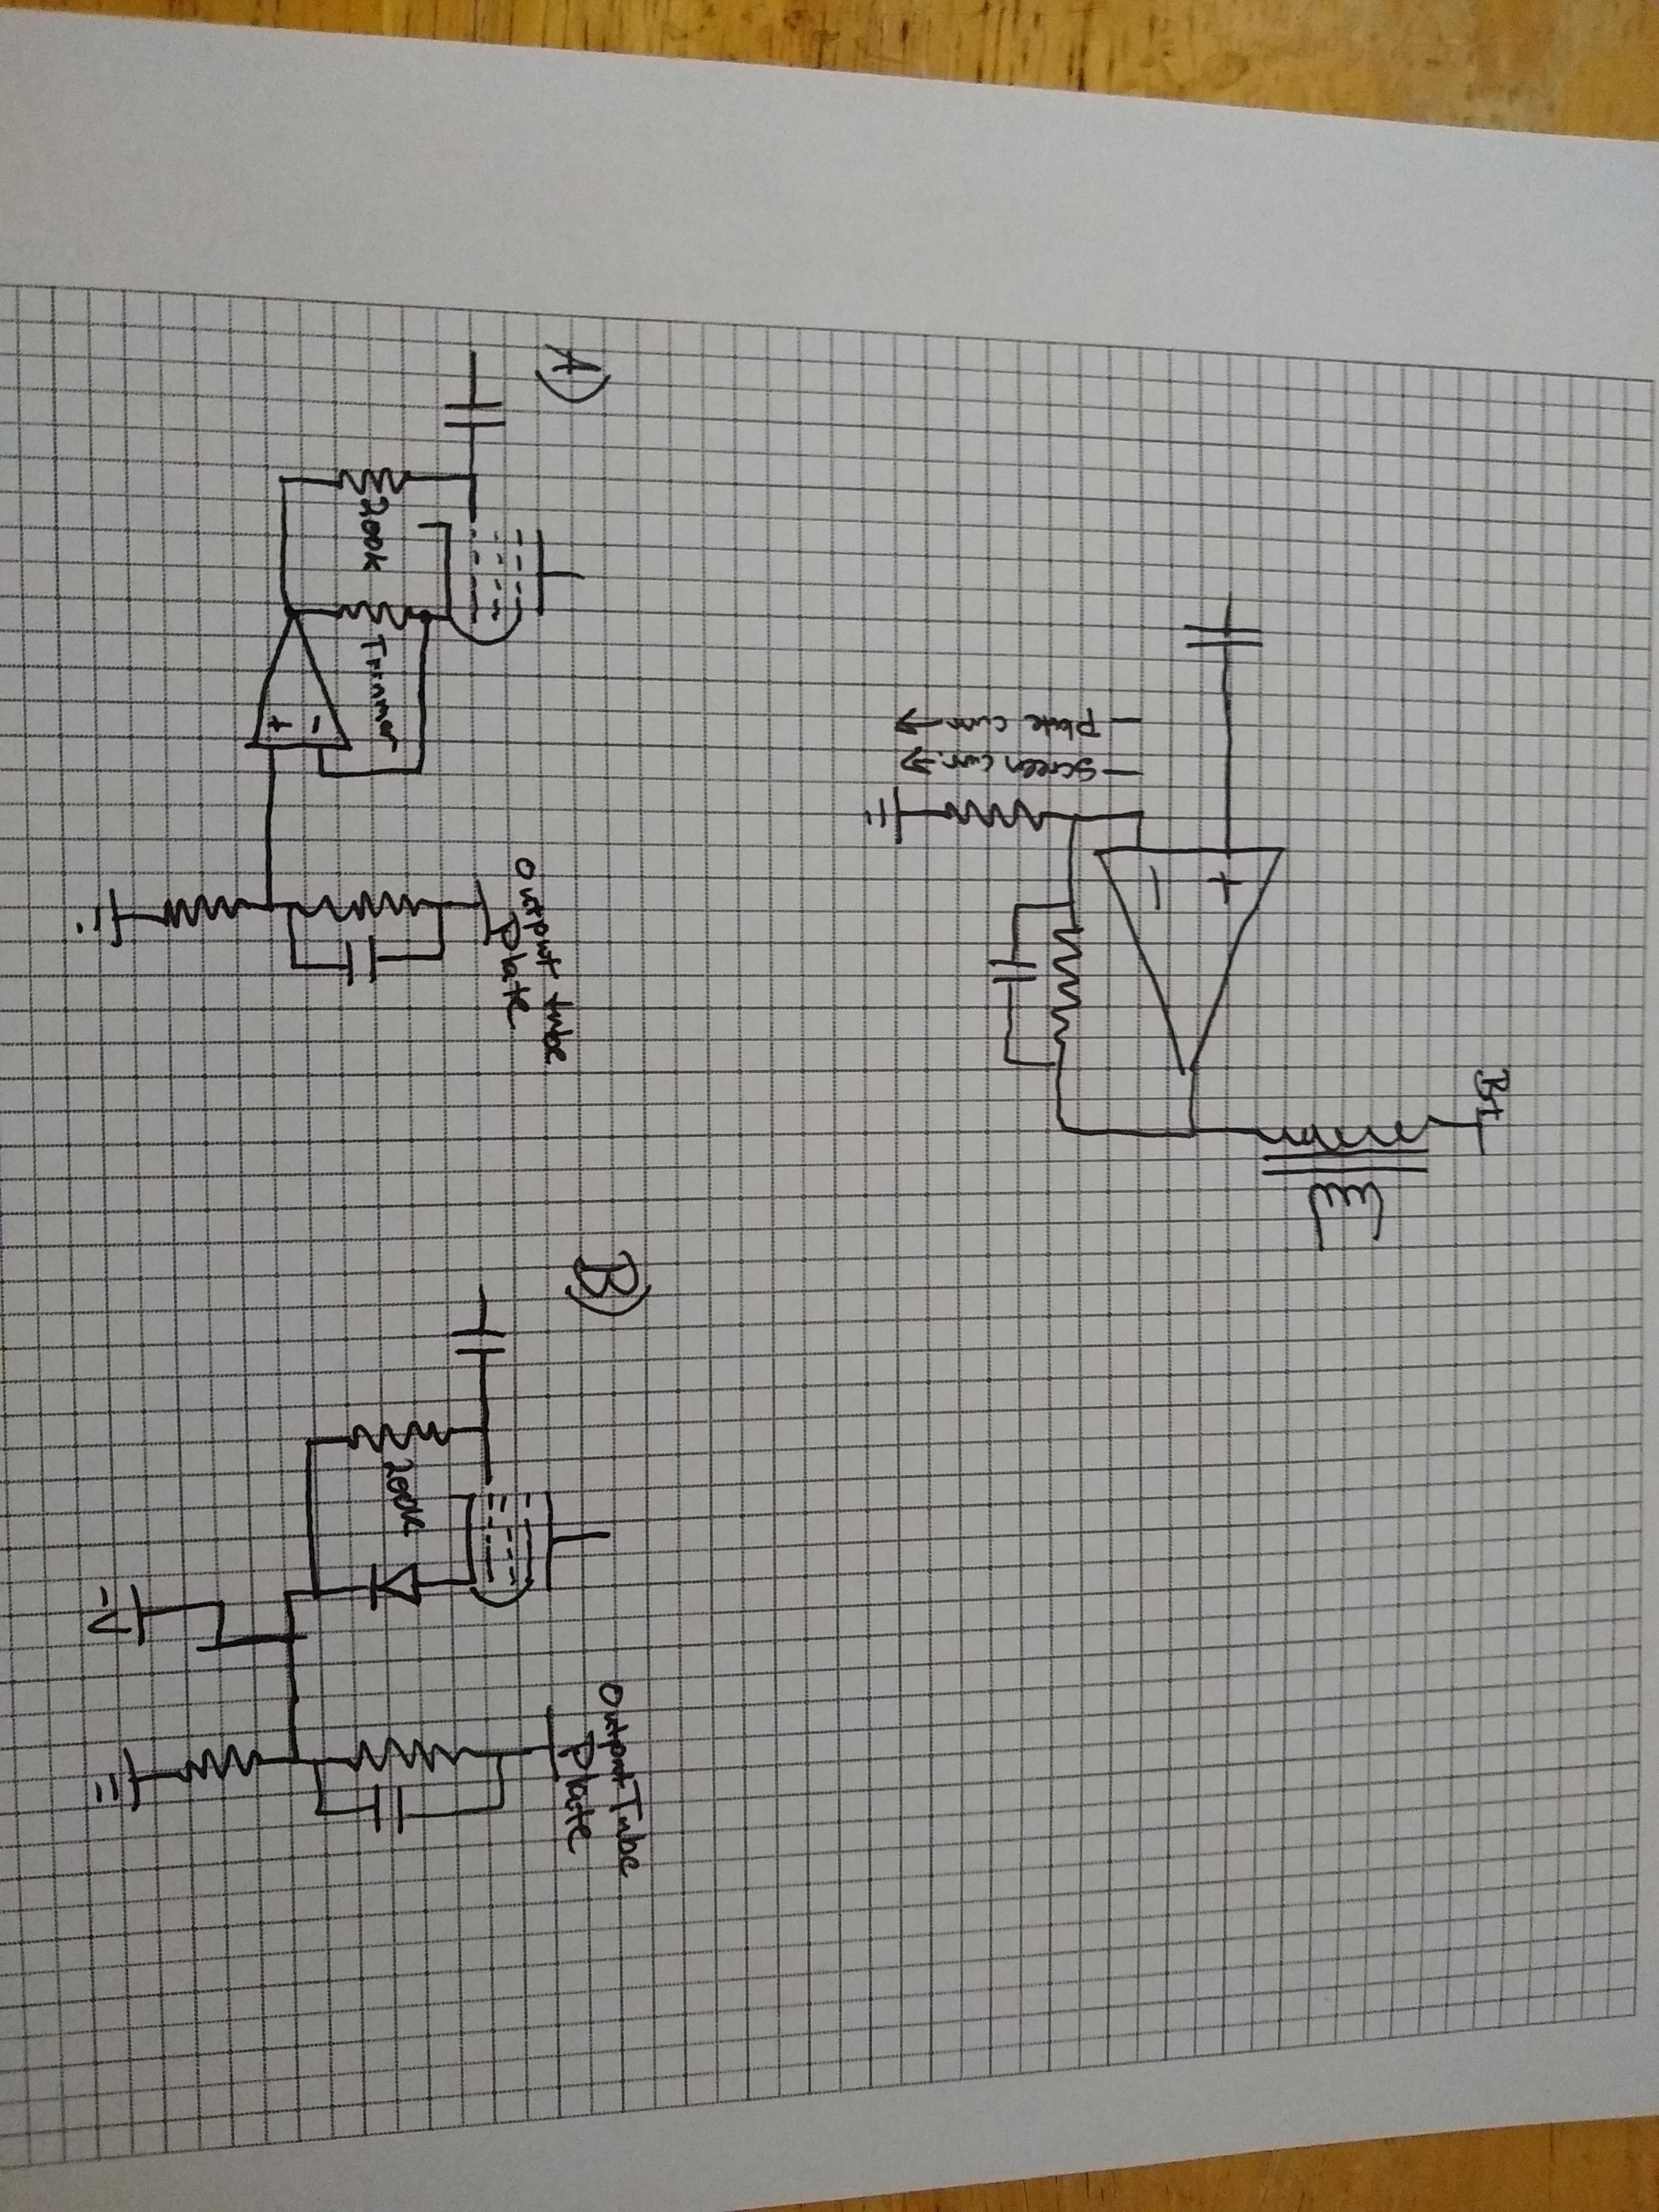 B+
+
-
- Plate curr →
- Screen curr. →
A)
200k
Trimmer
-
+
Output tube
Plate
B)
200k
-V
Output Tube
Plate